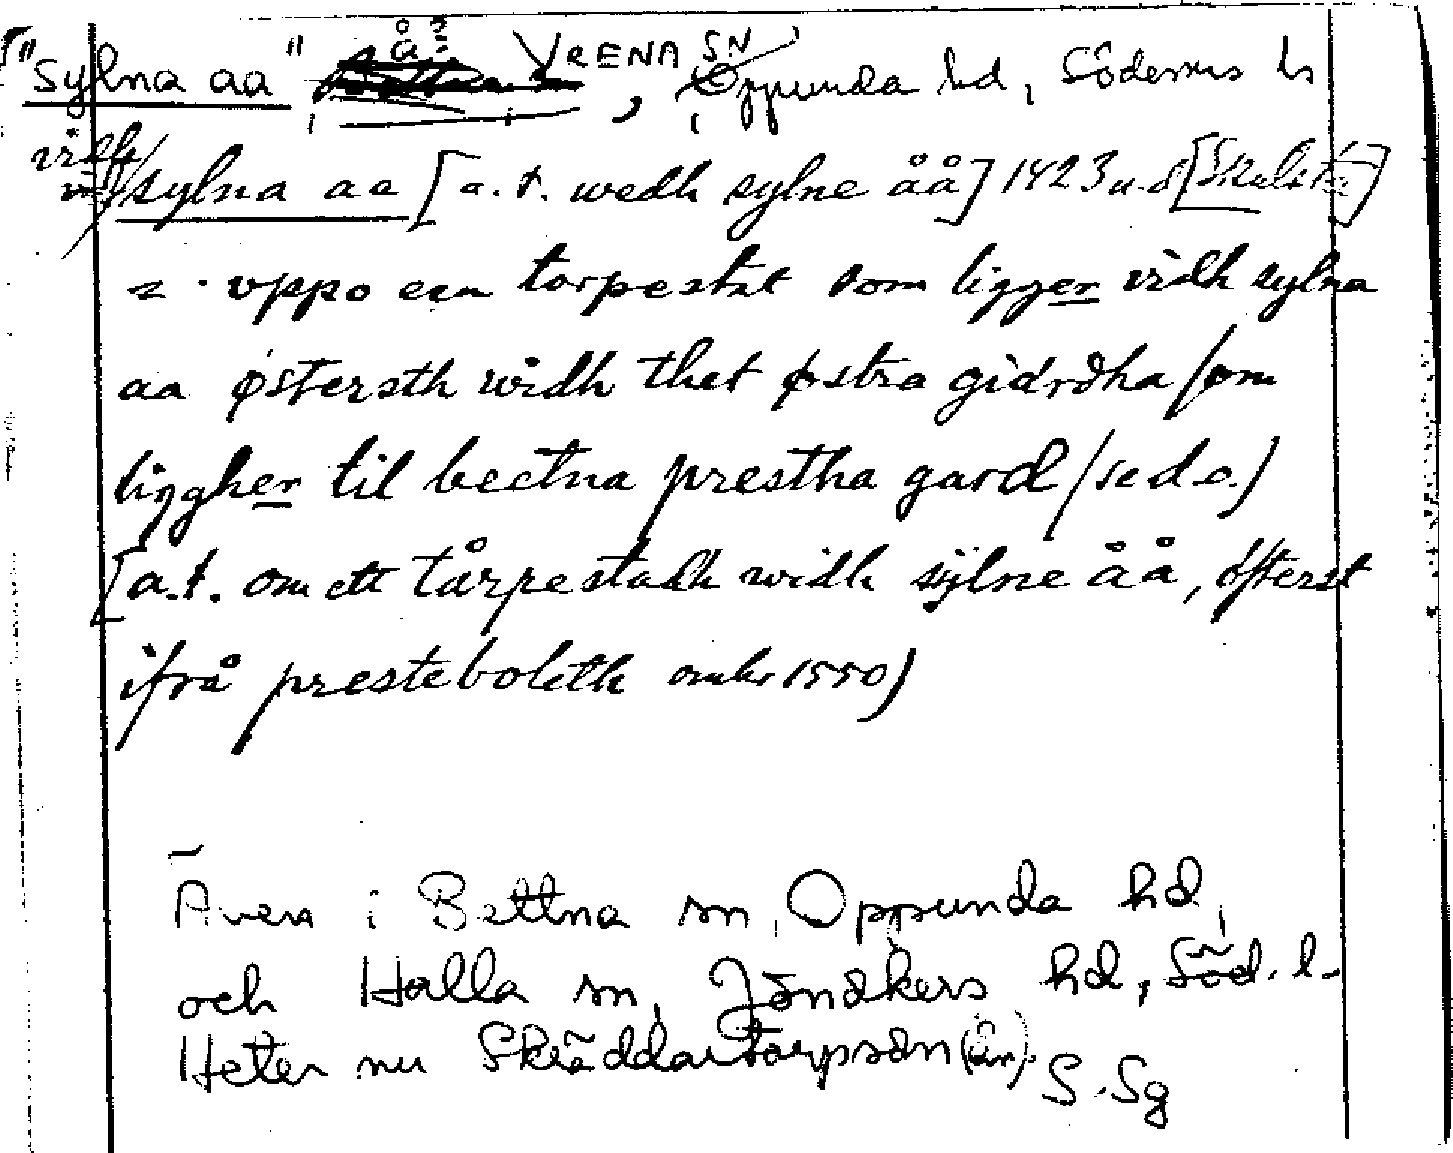 "sylna aa" å? VRENA SN, Oppunda hd, Södermns ln
vidh sylna aa [a.t. wedh sylne åå] 1423 u.d [Skulsta]
= . uppo een torpestat som ligger vidh sylna
aa østersth widh thet østra gidrdha /om
liggher til beetna prestha gard /sed.o./
[a.t. om ett tårpestadh widh sÿlne åå, öfterst
ifrå presteboleth omkr 1550)
Även i Bettna sn, Oppunda hd,
och Halla sn, Jönåkers hd, Söd. l.
Heter nu Skräddartorpsån (ån). S. Sg